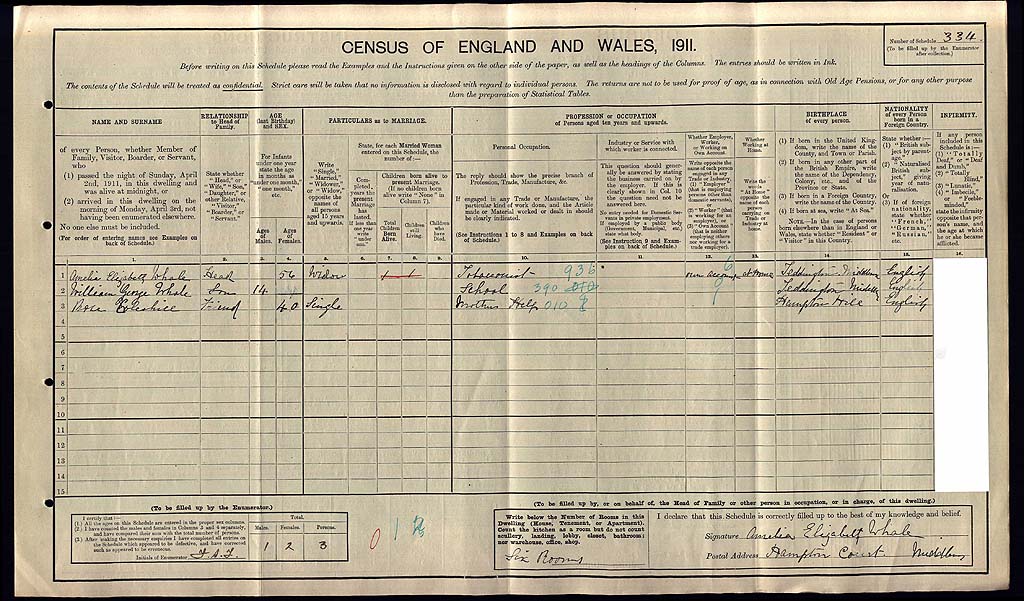 CENSUS OF ENGLAND AND WALES, 1911.
Number of Schedule 334
(To be filled up by the Enumerator
after collection.)
Before writing on this Schedule please read the Examples and the Instructions given on the other side of the paper, as well as the headings of the Columns. The entries should be written in Ink.
The contents of the Schedule will be treated as confidential. Strict care will be taken that no information is disclosed with regard to individual persons. The returns are not to be used for proof of age, as in connection with Old Age Pensions, or for any other purpose
than the preparation of Statistical Tables.
NAME AND SURNAME
of every Person, whether Member of
Family, Visitor, Boarder, or Servant,
who
(1) passed the night of Sunday, April
2nd, 1911, in this dwelling and
was alive at midnight, or
(2) arrived in this dwelling on the
morning of Monday, April 3rd, not
having been enumerated elsewhere.
No one else must be included.
(For order of entering names see Examples on
back of Schedule.)
RELATIONSHIP
to Head of
Family.
State whether
"Head," or
"Wife," "Son,"
"Daughter," or
other Relative,
"Visitor,"
"Boarder," or
"Servant."
AGE
(last Birthday)
and SEX.
For Infants
under one year
state the age
in months as
"under one month,"
"one month,"
etc.
Ages
of
Males.
Ages
of
Females.
PARTICULARS as to MARRIAGE.
Write
"Single,"
"Married,"
"Widower,"
or "Widow,"
opposite the
names of
all persons
aged 15 years
and upwards.
State, for each Married Woman
entered on this Schedule, the
number of:—
Completed
years the
present
Marriage
has
lasted.
If less than
one year
write
"under
one."
Children born alive to
present Marriage.
(If no children born
alive write "None" in
Column 7).
Total
Children
Born
Alive.
Children
still
Living.
Children
who
have
Died.
PROFESSION or OCCUPATION
of Persons aged ten years and upwards.
Personal Occupation.
The reply should show the precise branch of
Profession, Trade, Manufacture, &c.
If engaged in any Trade or Manufacture, the
particular kind of work done, and the Article
made or Material worked or dealt in should
be clearly indicated.
(See Instructions 1 to 8 and Examples on back
of Schedule.)
Industry or Service
with which worker is connected.
This question should generally
be answered by stating
the business carried on by
the employer. If this is
clearly shown in Col. 10
the question need not be
answered here.
No entry needed for Domestic Servants
in private employment.
If employed by a public body
(Government, Municipal, etc.)
state what body.
(See Instruction 9 and Examples
on back of Schedule.)
Whether Employer,
Worker,
or Working on
Own Account.
Write opposite the
name of each person
engaged in any
Trade or Industry,
(1) "Employer"
(that is employing
persons other than
domestic servants),
or
(2) "Worker" (that
is working for an
employer), or
(3) "Own Account"
(that is neither
employing others
nor working for a
trade employer).
Whether
Working at
Home.
Write the
words
"At Home"
opposite the
name of each
person
carrying on
Trade or
Industry at
home.
BIRTHPLACE
of every person.
(1) If born in the United Kingdom,
write the name of the
County, and Town or Parish.
(2) If born in any other part of
the British Empire, write
the name of the Dependency,
Colony, etc., and of the
Province or State.
(3) If born in a Foreign Country,
write the name of the Country.
(4) If born at sea, write "At Sea."
NOTE.—In the case of persons
born elsewhere than in England or
Wales, state whether "Resident" or
"Visitor" in this Country.
NATIONALITY
of every Person
born in a
Foreign Country.
State whether:—
(1) "British subject
by parentage."
(2) "Naturalised
British subject,"
giving
year of naturalisation.
(3) If of foreign
nationality,
state whether
"French,"
"German,"
"Russian,"
etc.
INFIRMITY.
If any person
included in this
Schedule is:—
(1) "Totally
Deaf," or "Deaf
and Dumb,"
(2) "Totally
Blind,"
(3) "Lunatic,"
(4) "Imbecile,"
or "Feeble-
minded,"
state the infirmity
opposite that person's
name, and
the age at which
he or she became
afflicted.
1. 2. 3. 4. 5. 6. 7. 8. 9. 10. 11. 12. 13. 14. 15. 16.
1 Amelia Elizabeth Whale Head 56 Widow Tobacconist 936 own account at Home Teddington English
2 William George Whale Son 14 School 390 Teddington English
3 Rose Friend 40 Single Mothers Help 010 Hampton Hill English
4
5
6
7
8
9
10
11
12
13
14
15
(To be filled up by the Enumerator.)
I certify that:—
(1.) All the ages on this Schedule are entered in the proper sex columns.
(2.) I have counted the males and females in Columns 3 and 4 separately,
and have compared their sum with the total number of persons.
(3.) After making the necessary enquiries I have completed all entries on
the Schedule which appeared to be defective, and have corrected
such as appeared to be erroneous.
Initials of Enumerator
Total.
Males. Females. Persons.
2 3
0 1
(To be filled up by, or on behalf of, the Head of Family or other person in occupation, or in charge, of this dwelling.)
Write below the Number of Rooms in this
Dwelling (House, Tenement, or Apartment).
Count the kitchen as a room but do not count
scullery, landing, lobby, closet, bathroom;
nor warehouse, office, shop.
Six Rooms
I declare that this Schedule is correctly filled up to the best of my knowledge and belief.
Signature Amelia Elizabeth Whale
Postal Address Hampton Court